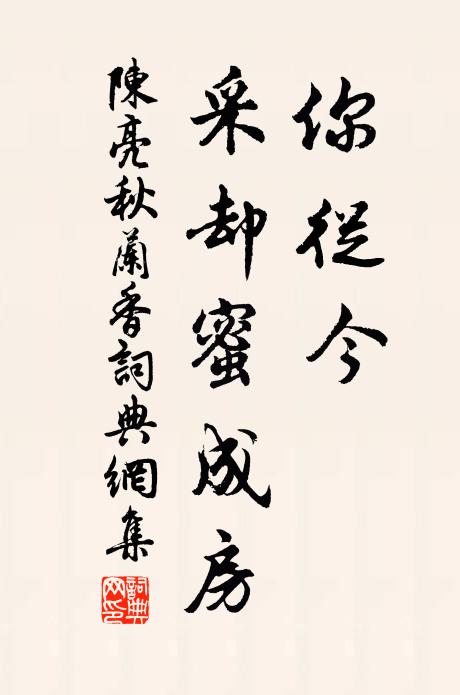 你從今
采却蜜成房
陳亮秋蘭香詞典網集
詞典網印